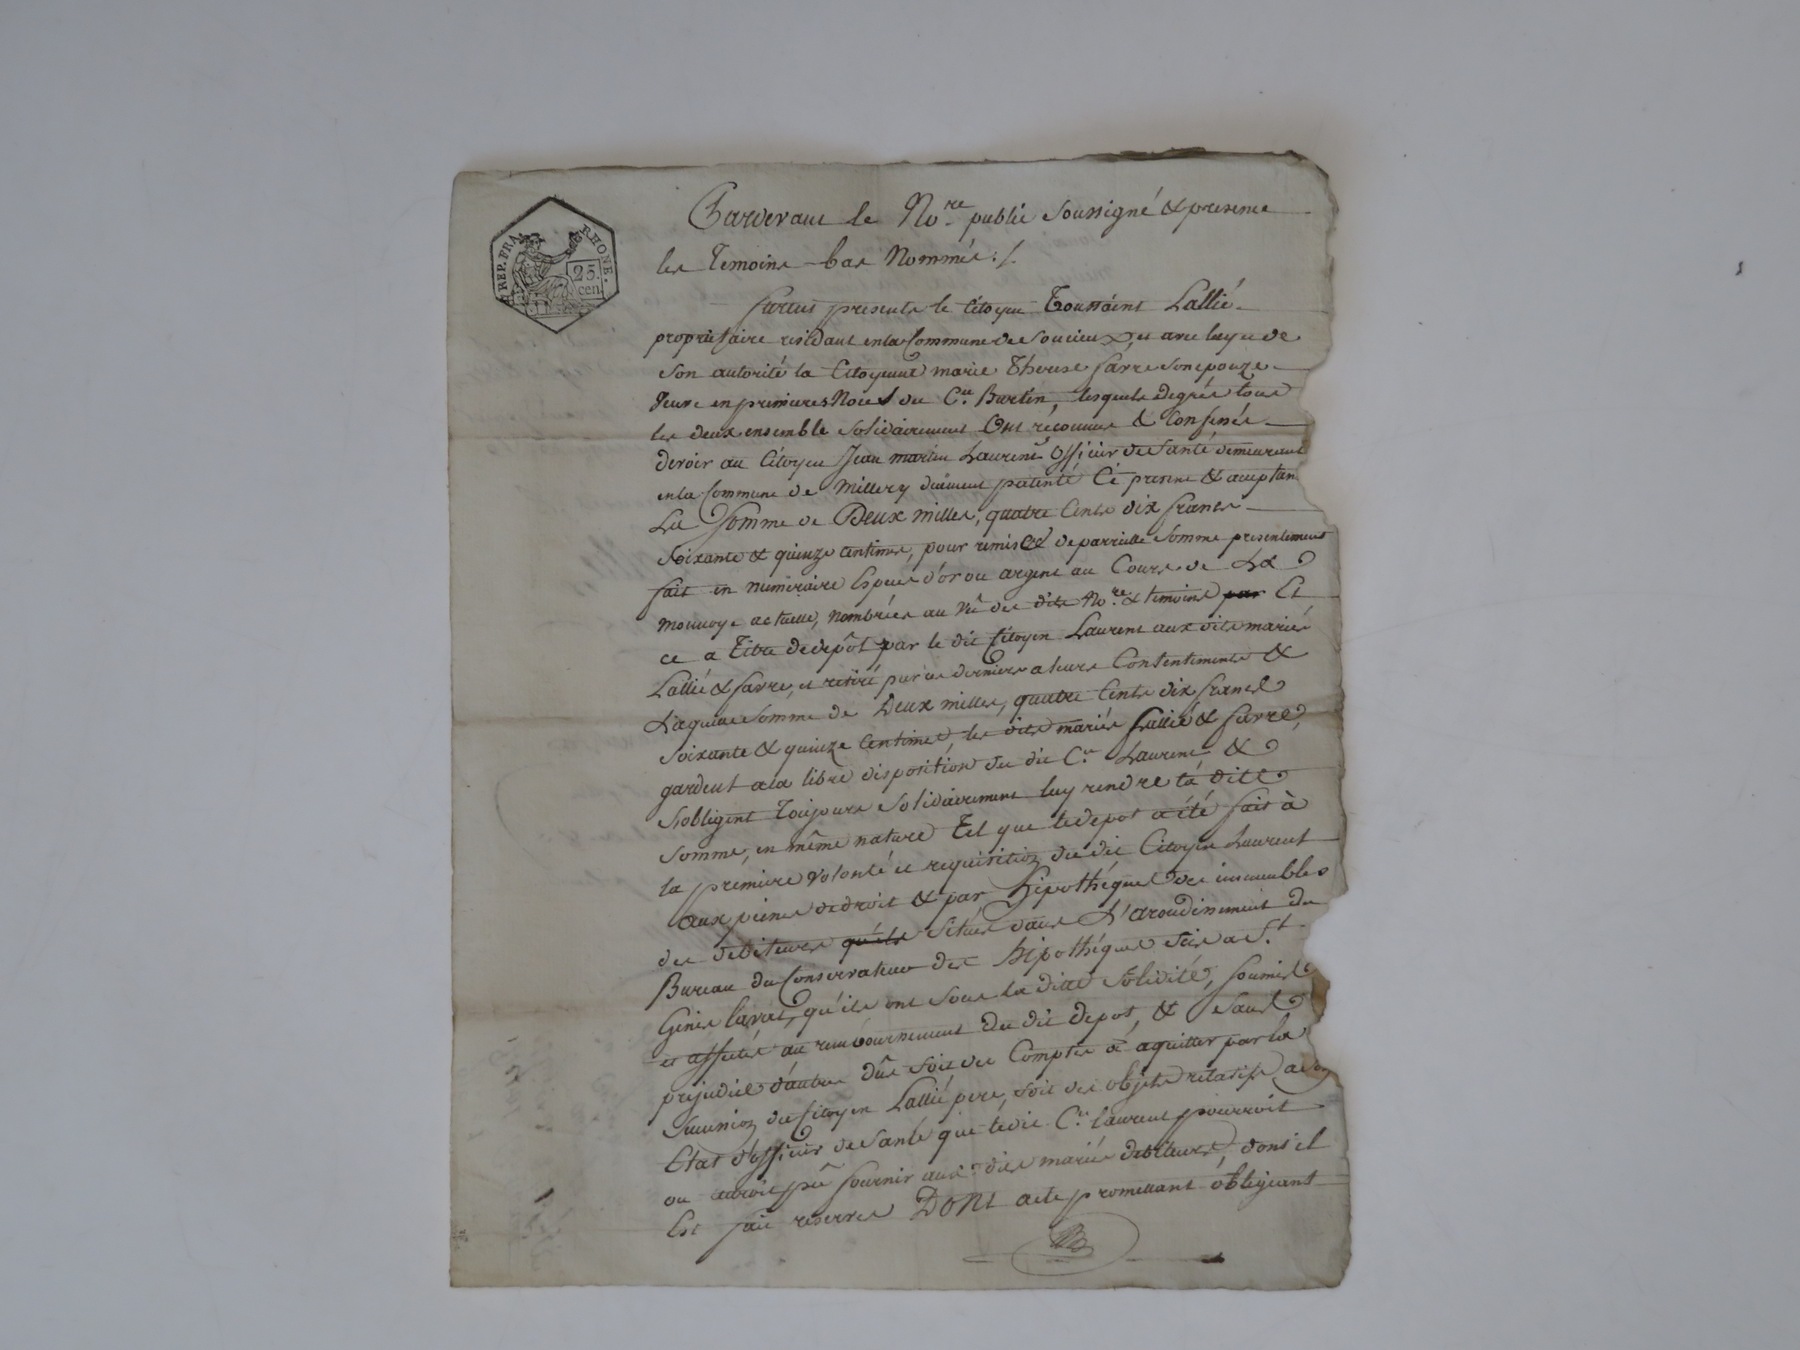 REP. FRA. RHONE.
25.
cen.
Pardevant le No.re public Soussigné & presents
les Temoins bas Nommés :/.
furent presents le Citoyen Toussaint Lallié
proprietaire residant en la Commune de Soucieux, et avec luy et de
Son autorité la Citoyenne marie Therese farre son epouze
veuve en premieres Noces du C.en Burtin, lesquels de grés tous
les deux ensemble Solidairement Ont réconnus & Confessés
devoir au Citoyen Jean martin Laurent Officier de Santé demeurant
en la Commune de Millery duëment patenté Cé present & aceptan
La Somme de Deux milles, quatre Cents dix francs
Soixante & quinze centimes, pour remise de parreille Somme presentement
fait en numéraire Especes d'or ou argent au Cours de La
monnoye actuelle, nombrées au Vû des dits No.re & temoins par Et
ce a Titre de depôt par le dit Citoyen Laurent aux dits mariés
Lallié & farre, et rétiré par ces derniers a leurs Contentements &
Laquelle Somme de Deux milles, quatre Cents dix francs
Soixante & quinze Centimes, les dits mariés Lallié & farre,
gardent a la libre disposition du dit C.en Laurent &
s'obligent Toujours Solidairement luy rendre la dite
Somme, en même nature Tel que le depot a été fait à
la premiere Volonté et requisition du dit Citoyen Laurent
aux peines de droit & par Hipothéques des immeubles
des debiteurs qu'ils Situés dans L'arondissement du
Bureau du Conservateur des hipothéques Seis a S.t
Genis laval, qu'ils ont Sous la dite Solidité, Soumis
et affectés au remboursement du dit depot, & Sans
préjudice d'autres dûs Soit des Comptes à aquitter par la
du Citoyen Lallié pere, Soit des objets rélatifs a son
Etat d'officier de Santé que le dit C.en Laurent pourroit
ou auroit pû fournir aux dits mariés debiteurs, dont il
Est fait réserves DONt acte promettant obligeant